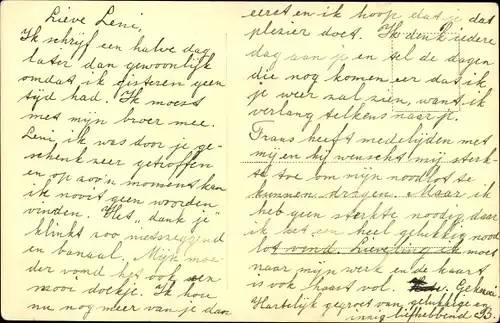 Lieve Leni,
Ik schrijf een halve dag
later dan gewoonlijk
omdat ik gisteren geen
tijd had. Ik moest
met mijn broer mee.
Leni, ik was door je ge-
schenk zeer getroffen
en op zoo'n moment kan
ik nooit geen woorden
vinden. Het „dank je"
klinkt zoo nietszeggend
en banaal. Mijn moe-
der vond het ook een
mooi doekje. Ik hou
nu nog meer van je dan
eerst en ik hoop dat je dat
plezier doet. Ik denk iedere
dag aan je en tel de dagen
die nog komen eer dat ik
je weer zal zien, want ik
verlang telkens naar je.
Frans heeft medelijden met
mij en hij wenscht mij sterk-
te toe om mijn noodlot te
kunnen dragen. Maar ik
heb geen sterkte noodig daar
ik het een heel gelukkig nood
lot vond. Lieveling ik moet
naar mijn werk en de kaart
is ook haast vol.
Hartelijk gegroet van
innig liefhebbend